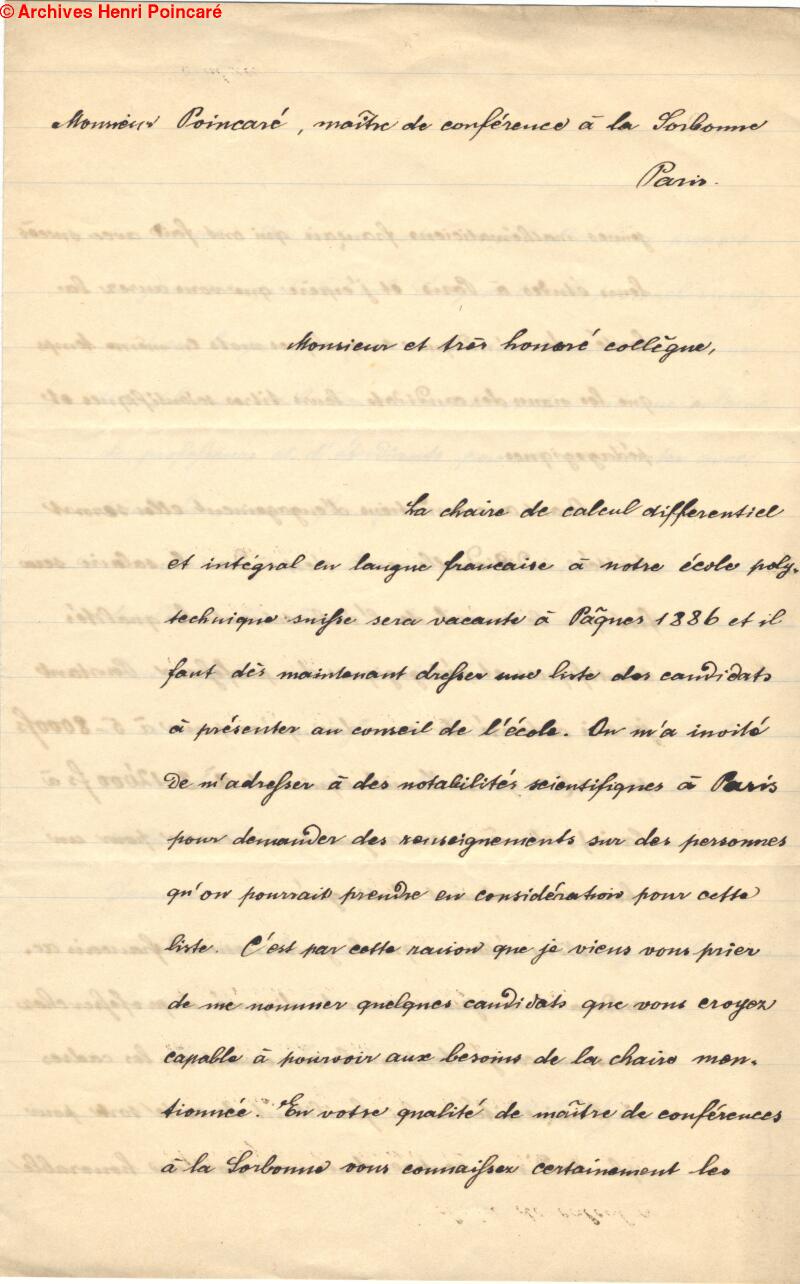 © Archives Henri Poincaré
Monsieur Poincaré, maître de conférence à la Sorbonne
Paris.
Monsieur et très honoré collègue,
La chaire de calcul differentiel
et intégral en langue francaise à notre école poly-
technique suisse sera vacante à Pâques 1886 et il
faut dès maintenant dresser une liste des candidats
à présenter au conseil de l'école. On m'a invité
de m'adresser à des notabilités scientifiques à Paris
pour demander des renseignements sur des personnes
qu'on pourrait prendre en considération pour cette
liste. C'est par cette raison que je viens vous prier
de me nommer quelques candidats que vous croyez
capable à pourvoir aux besoins de la chaire men-
tionnée. En votre qualité de maître de conférences
à la Sorbonne vous connaissez certainement les